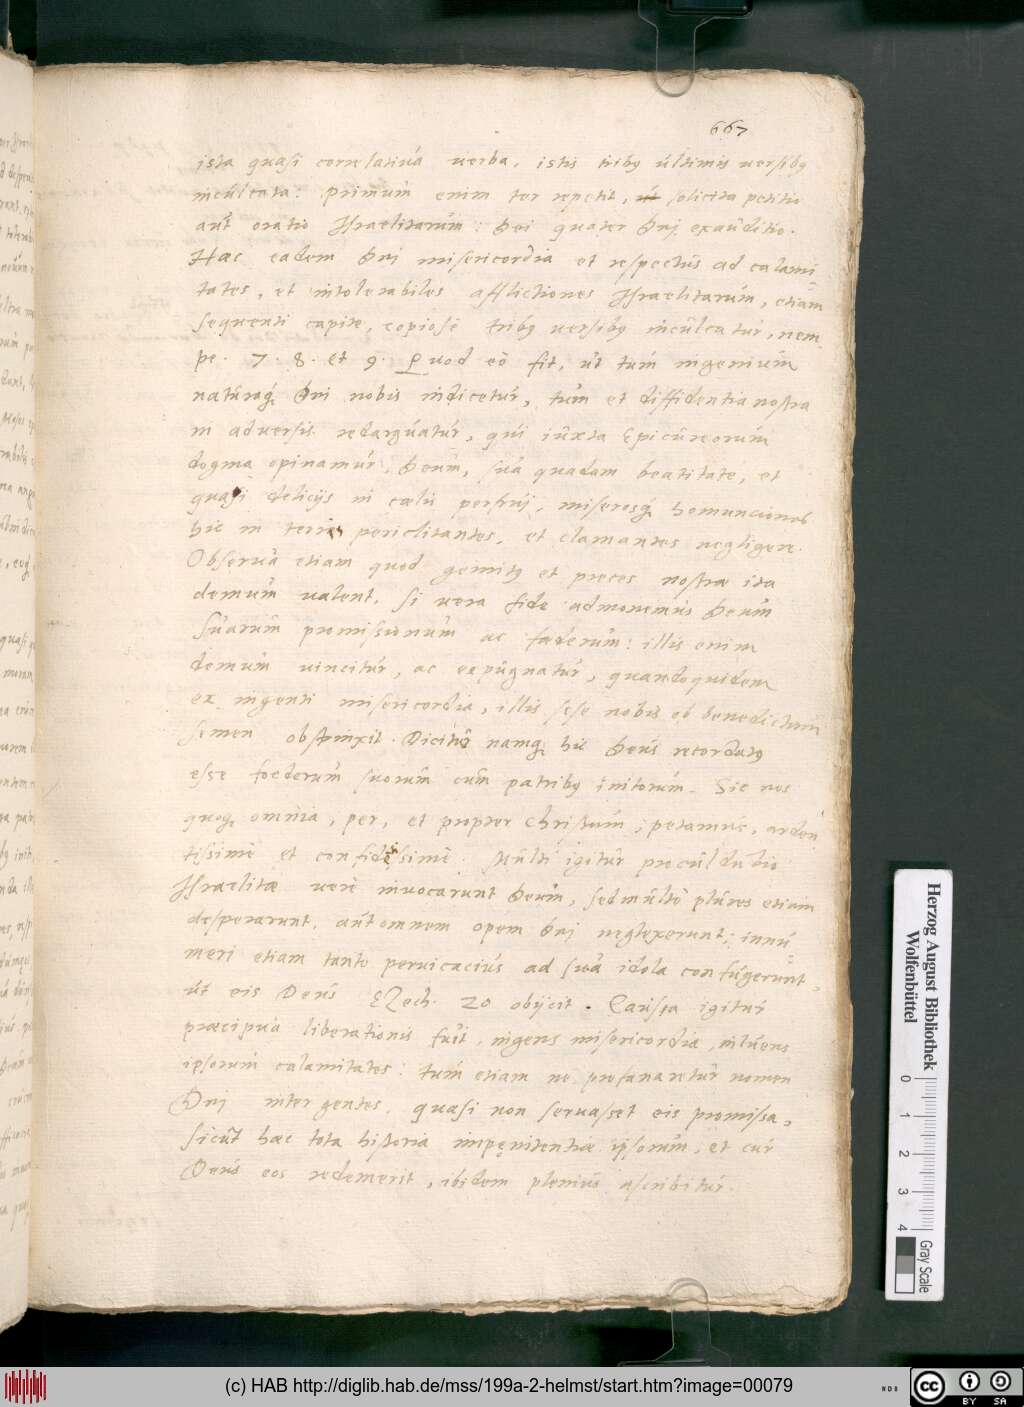 667
ista quasi correlativa verba, istis tribꝫ ultimis versibꝫ
inculcata: Primum enim ter repetit, solicita petitio
aut oratio Israelitarum: Dei quater Dnj exauditio.
Haec eadem Dni misericordia et respectus ad calami
tates, et intolerabiles afflictiones Israelitarum, etiam
sequenti capite, copiosè tribꝫ versibꝫ inculcatur, nem
pe. 7. 8. et 9. Quod eò fit, ut tum ingenium
naturaqꝫ Dni nobis indicetur, tum et diffidentia nostra
in adversis redarguatur, qui iuxta Epicureorum
dogma opinamur, Deum, sua quadam beatitate, et
quasi delicijs in caelis perfrui, miserosqꝫ homunciones
hic in terris periclitantes, et clamantes negligere.
Observa etiam quod gemitꝫ et preces nostrae ita
demum valent, si vera fide admonemus Deum
suarum promissionum ac foederum: illis enim
demum vincitur, ac expugnatur, quandoquidem
ex ingenti misericordia, illis sese nobis ob benedictum
semen obstrinxit. Dicitur namqꝫ hic Deus recordatꝫ
esse foederum suorum cum patribꝫ initorum. Sic nos
quoqꝫ omnia, per, et propter Christum, petamus, arden
tissimè et confidessimè. Multi igitur procul dubio
Israelitae verè invocarunt Deum, sed multò plures etiam
desperarunt, aut omnem opem Dnj neglexerunt; innu
meri etiam tanto pervicacius ad sua idola confugerunt,
ut eis Deus EZech. 20 obijcit. Caussa igitur
praecipua liberationis fuit, ingens misericordia, intuens
ipsorum calamitates: tum etiam ne profanaretur nomen
Dnj inter gentes, quasi non servasset eis promissa,
sicut haec tota historia impęnitentiae ipsorum, et cur
Deus eos redemerit, ibidem plenius ascribitur.
Herzog August Bibliothek
Wolfenbüttel
0 1 2 3 4
Gray Scale
(c) HAB http://diglib.hab.de/mss/199a-2-helmst/start.htm?image=00079
cc BY SA